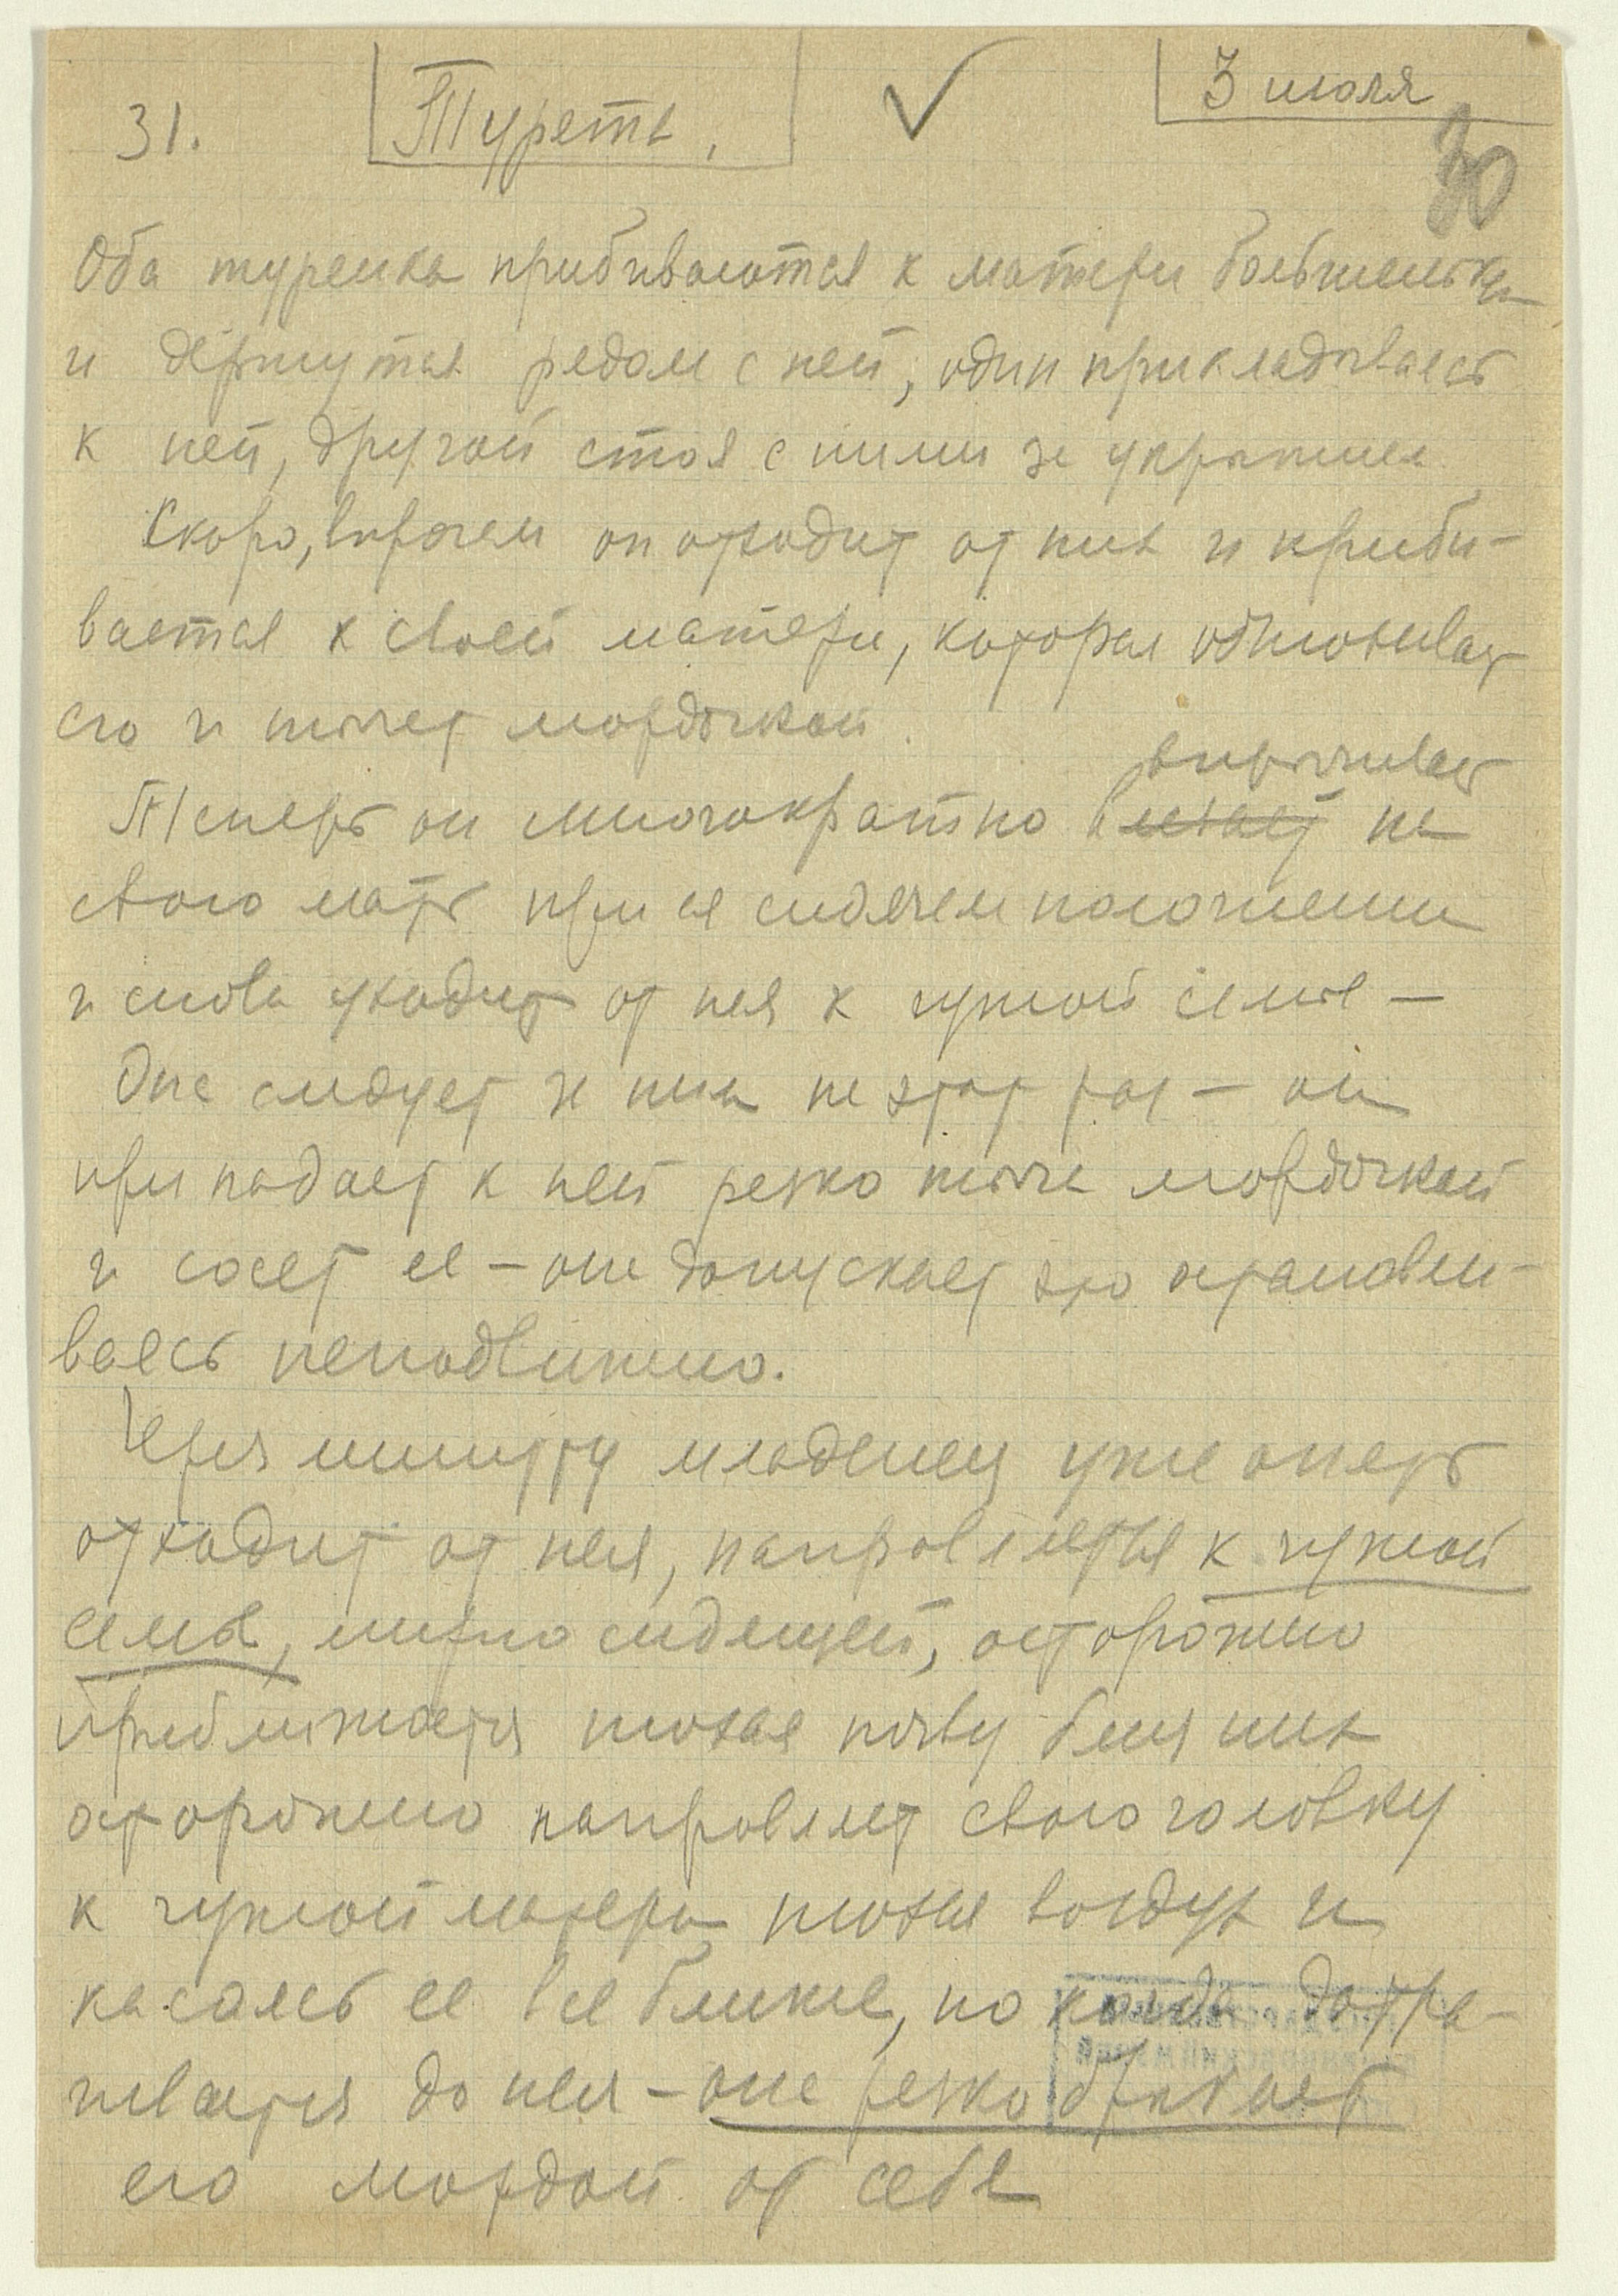 31. Туреты, 3 июля
30
Оба туренка прибиваются к матери большеньк
и держутся рядом с ней, один прикладываясь
к ней, другой стоя с ними
Скоро, впрочем он отходит от них и приби-
вается к своей матери, которая обнюхивает
его и тычет мордочкой.
впрыгивает
Теперь он многократно влезает на
свою мать при ея сидячем положении
и снова уходит от нея к чужой семье –
Она следует за ним на этот раз – он
припадает к ней резко тыча мордочкой
и сосет ее – она допускает это останавли-
ваясь неподвижно.
Через минуту младенец уже опять
отходит от нея, направляется к чужой
семье, мирно сидящей, осторожно
приближается нюхая почву близ них
осторожно направляет свою головку
к чужой матери нюхая воздух и
касаясь ее все ближе, но когда дотра-
гивается до нея – она резко отпихает
его мордой от себя